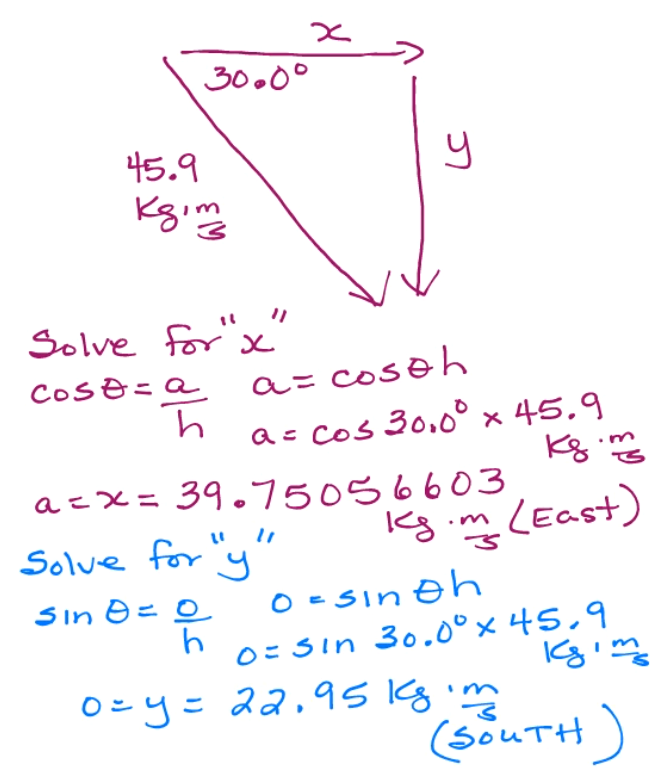 x
30.0°
y
45.9
Kg·m/s
Solve for "x"
cosθ = a/h a = cosθh
a = cos 30.0° × 45.9
Kg·m/s
a = x = 39.75056603
Kg·m/s (East)
Solve for "y"
sin θ = o/h o = sin θh
o = sin 30.0° × 45.9
Kg·m/s
o = y = 22.95 Kg·m/s
(SOUTH)